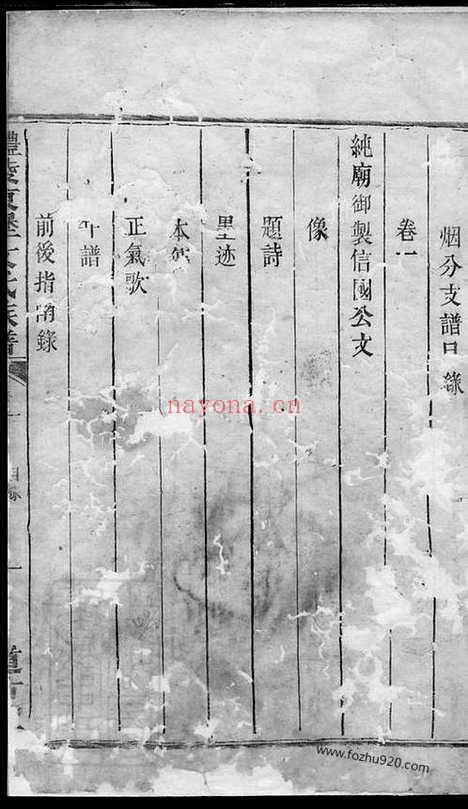 烟分支譜目錄
卷一
純廟御製信國公文
像
題詩
墨迹
本傳
正氣歌
年譜
前後指南錄
醴陵東
文氏族譜
目錄
一
nayona.cn
www.fozhu920.com